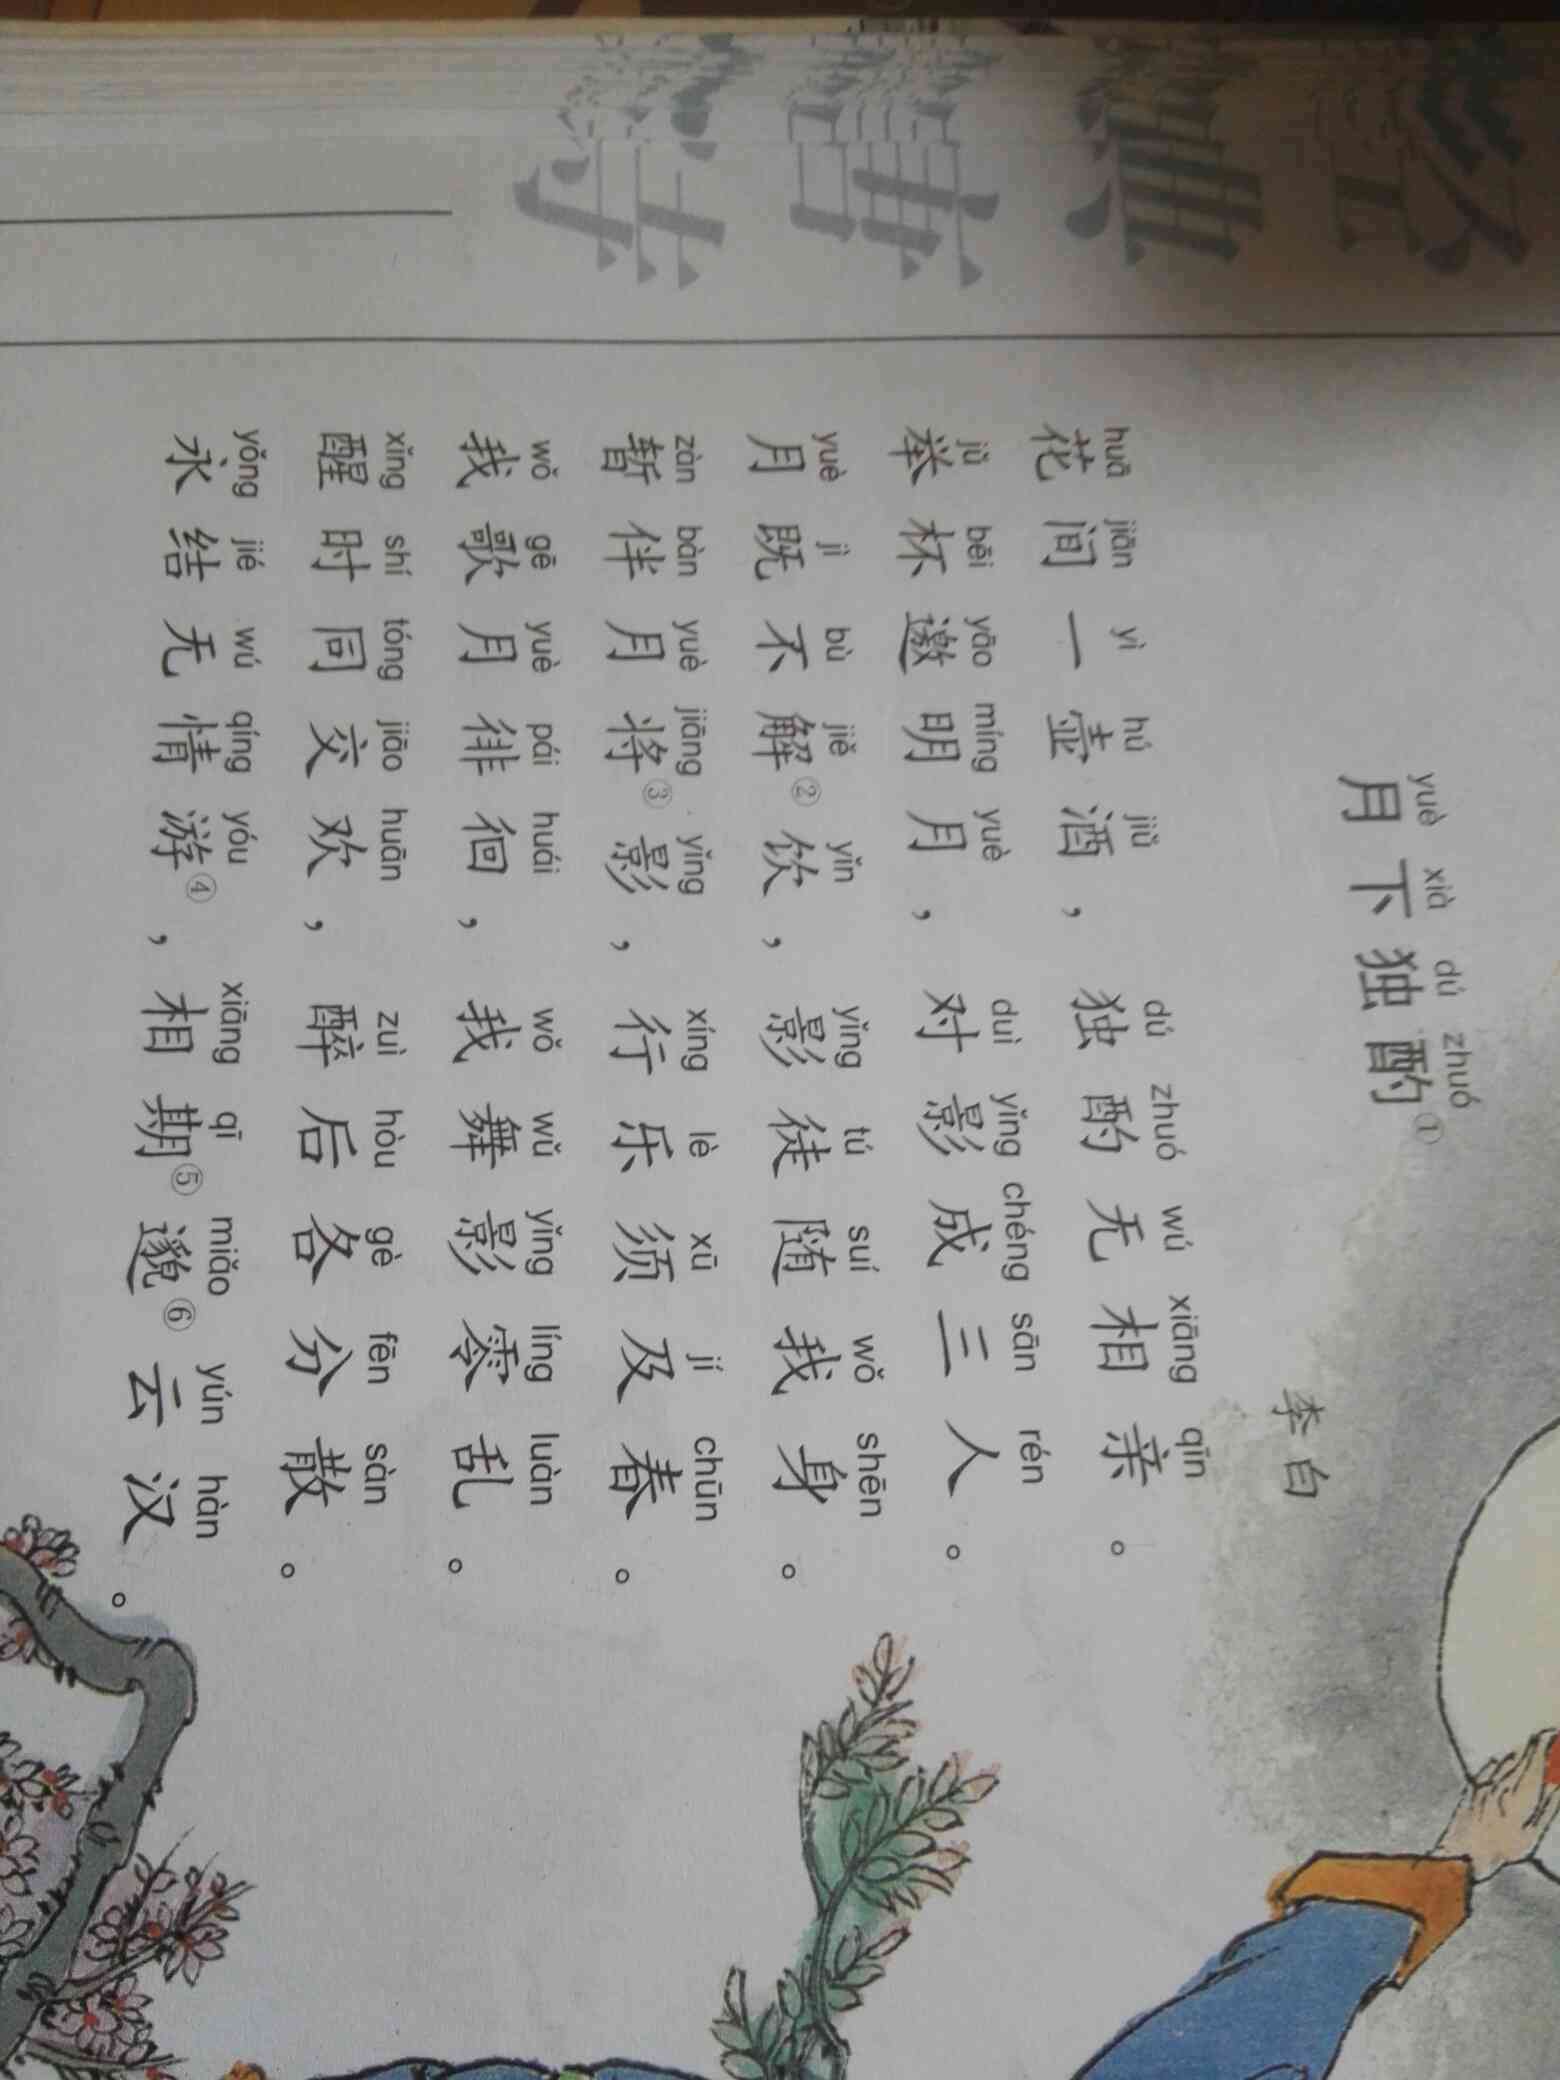 yuè xià dú zhuó
月下独酌①
李白
huā jiān yì hú jiǔ dú zhuó wú xiāng qīn
花间一壶酒，独酌无相亲。
jǔ bēi yāo míng yuè duì yǐng chéng sān rén
举杯邀明月，对影成三人。
yuè jì bù jiě yǐn yǐng tú suí wǒ shēn
月既不解②饮，影徒随我身。
zàn bàn yuè jiāng yǐng xíng lè xū jí chūn
暂伴月将③影，行乐须及春。
wǒ gē yuè pái huái wǒ wǔ yǐng líng luàn
我歌月徘徊，我舞影零乱。
xǐng shí tóng jiāo huān zuì hòu gè fēn sàn
醒时同交欢，醉后各分散。
yǒng jié wú qíng yóu xiāng qī miǎo yún hàn
永结无情游④，相期⑤邈⑥云汉。